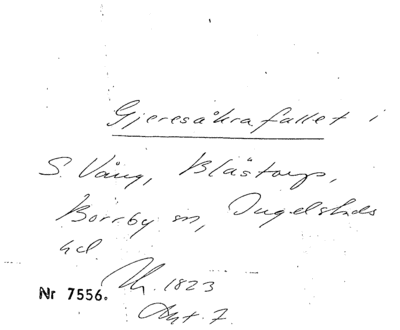 Gjeresåkrafallet i
S. Vång, Blästorp,
Borrby sn, Ingelstads
hd.
Nr 7556. Kr. 1823
Akt. 7